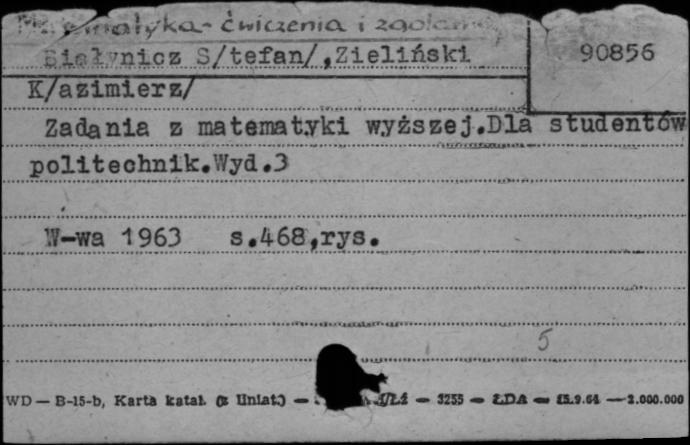 Matematyka - ćwiczenia i zadania
Białynicz S/tefan/,Zieliński
90856
K/azimierz/
Zadania z matematyki wyższej.Dla studentów
politechnik.Wyd.3
W-wa 1963 s.468,rys.
5
WD — B-15-b, Karta katal. (z Uniat.) — /Łź — 3255 — ŁDA — 15.9.64 — 2.000.000